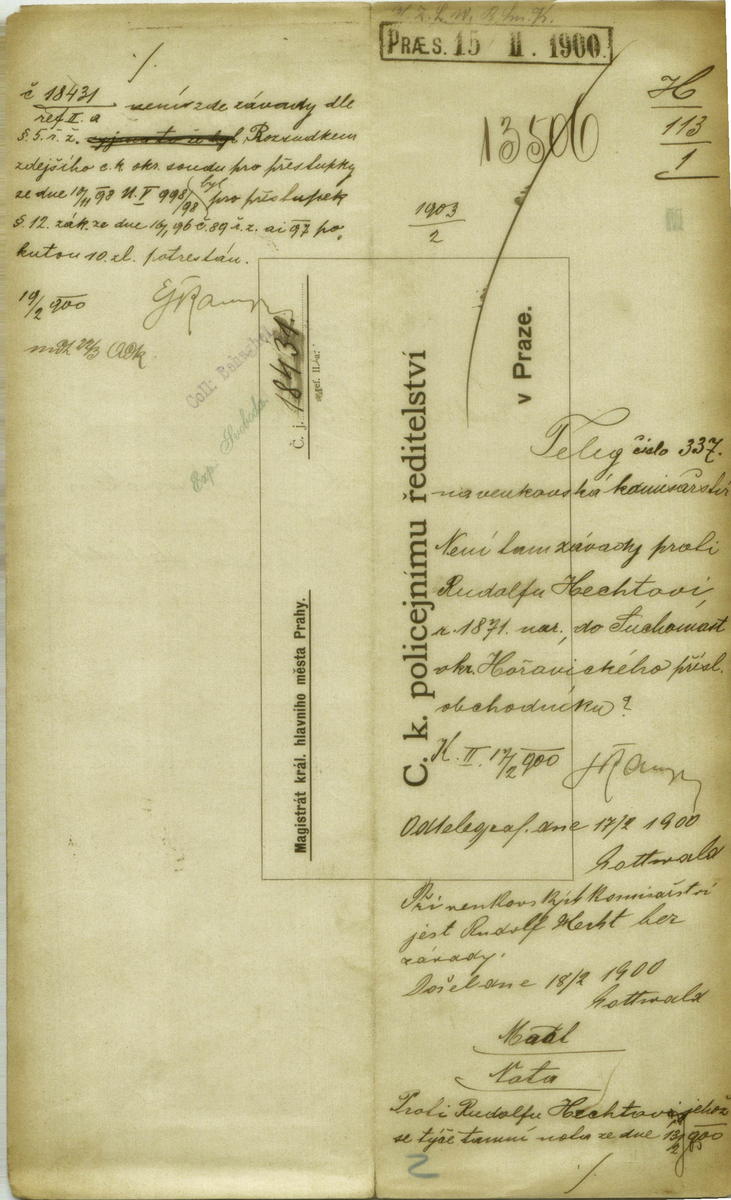 PRÆS. 15 II. 1900.
H
113
1
13506
1903
2
Teleg číslo 337.
na venkovská komisařství
Není tam závady proti
Rudolfu Hechtovi,
r. 1871. nar., do Suchomast
okr. Hořovického přísl.
obchodníku?
K. II. 17/2 900
Odtelegraf. dne 17/2 1900
Gottwald
Při venkovských komisařství
jest Rudolf Hecht bez
závady.
Došel dne 18/2 1900
Gottwald
Madl
Nota
Proti Rudolfu Hechtovi, jehož
se týče tamní nota ze dne 13/2 900
2
C. k. policejnímu ředitelství
v Praze.
Magistrát král. hlavního města Prahy.
Č. j. 18431.
ref. II. a.
./.
č 18431
ref. II. a
není zde závady dle
§. 5. ř. ž. Rozsudkem
zdejšího c. k. okr. soudu pro přestupky
ze dne 10/11 98 U. V 998/98 byl pro přestupek
§. 12. zák. ze dne 16/1 96 č. 89 ř. z. ai 97 po
kutou 10. zl. potrestán.
19/2 900
Coll:
Exp. Svoboda